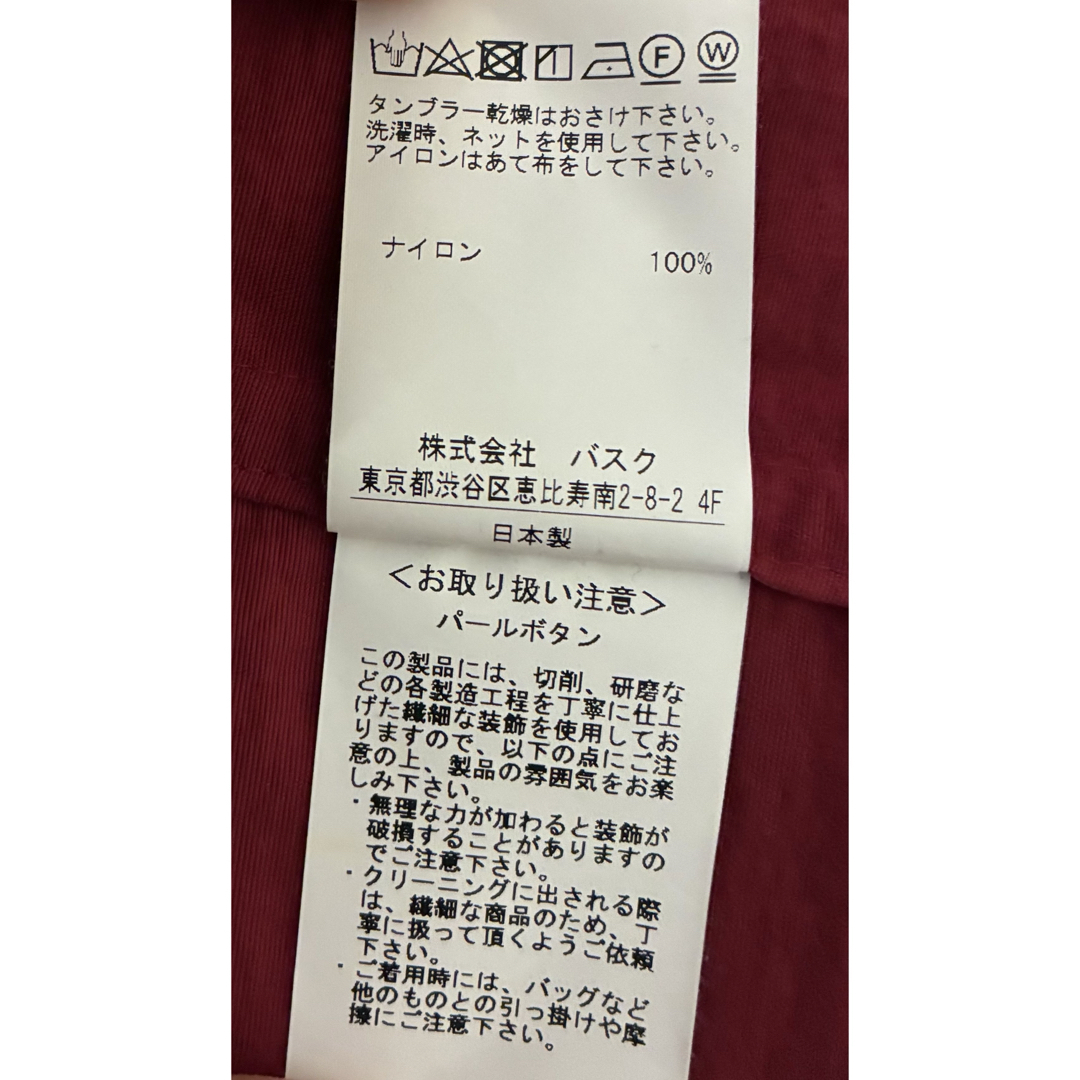 F W
タンブラー乾燥はおさけ下さい。
洗濯時、ネットを使用して下さい。
アイロンはあて布をして下さい。
ナイロン 100%
株式会社 バスク
東京都渋谷区恵比寿南2-8-2 4F
日本製
＜お取り扱い注意＞
パールボタン
この製品には、切削、研磨な
どの各製造工程を丁寧に仕上
げた繊細な装飾を使用してお
りますので、以下の点にご注
意の上、製品の雰囲気をお楽
しみ下さい。
・無理な力が加わると装飾が
破損することがありますの
でご注意下さい。
・クリーニングに出される際
は、繊細な商品のため、丁
寧に扱って頂くようご依頼
下さい。
・ご着用時には、バッグなど
他のものとの引っ掛けや摩
擦にご注意下さい。